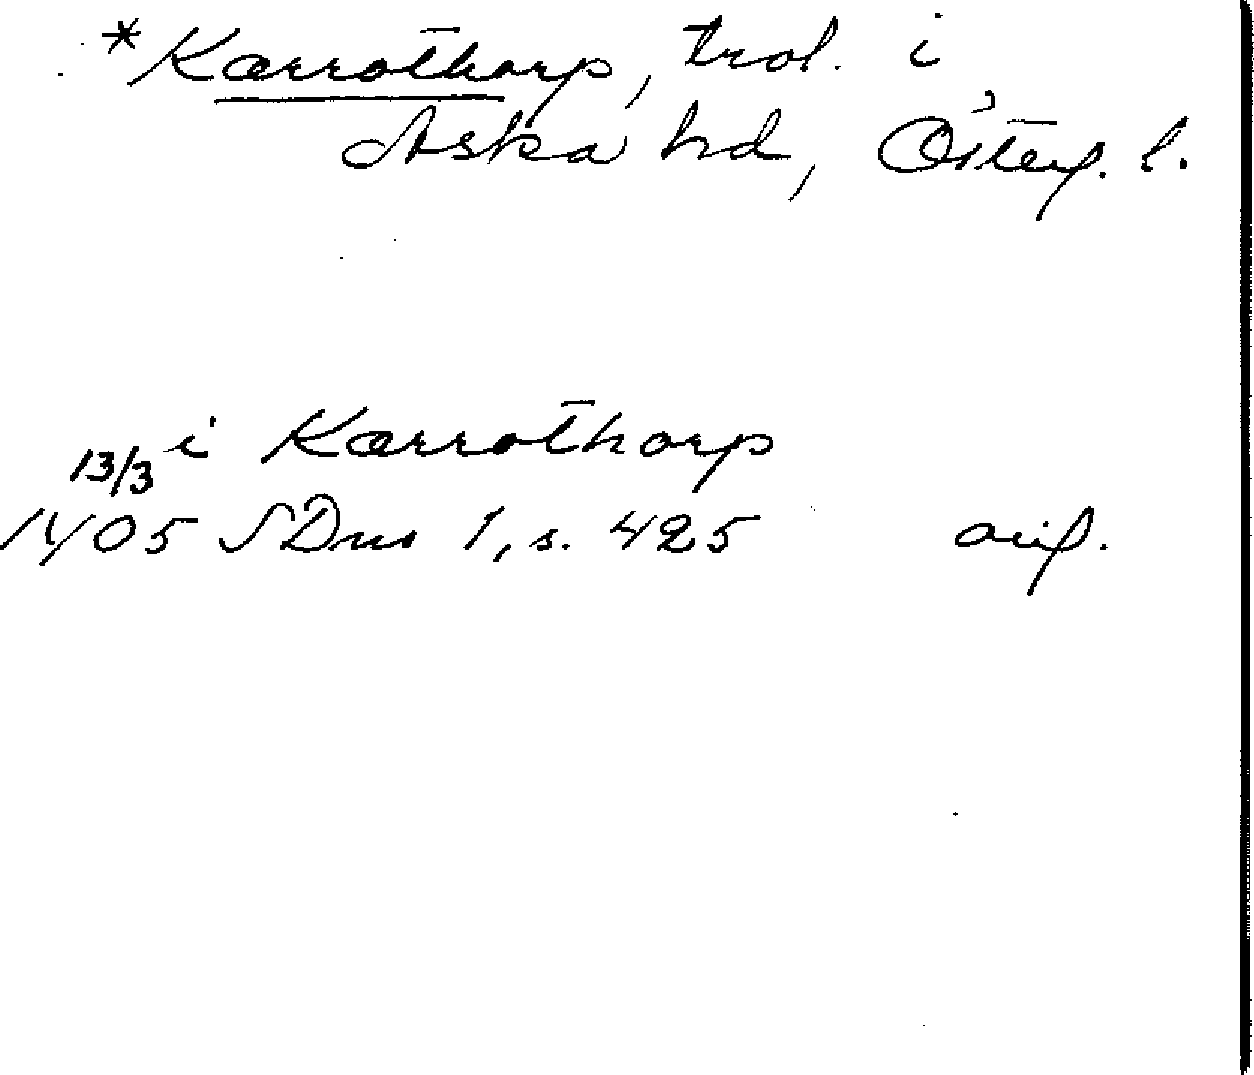 *Karrothorp, trol. i
Aska hd, Österg. l.
i Karrothorp
13/3
1405 SDns 1, s. 425 orig.